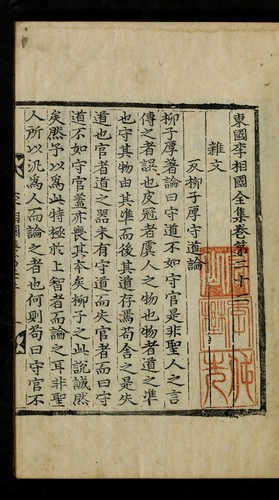 東國李相國全集卷第二十二
雜文
反柳子厚守道論
柳子厚著論曰守道不如守官是非聖人之言
傳之者誤也皮冠者虞人之物也物者道之準
也守其物由其準而後其道存焉苟舍之是失
道也官者道之器未有守道而失官者而曰守
道不如守官蓋亦喪其本矣柳子之此說誠然
矣然予以爲此特極於上智者而論之耳非聖
人所以汎爲人而論之者也何則苟曰守官不